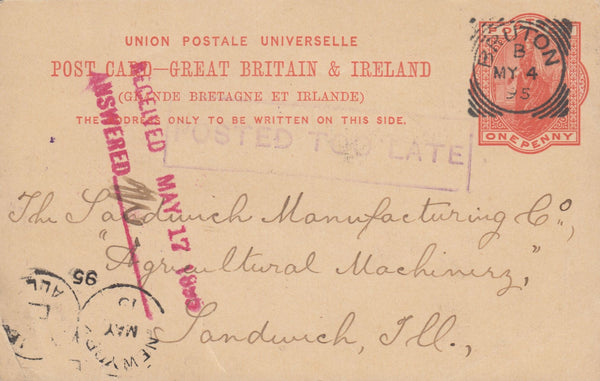 UNION POSTALE UNIVERSELLE
POST CARD—GREAT BRITAIN & IRELAND
(GRANDE BRETAGNE ET IRLANDE)
THE ADDRESS ONLY TO BE WRITTEN ON THIS SIDE.
BRUTON
B
MY 4
95
ONE PENNY
POSTED TOO LATE
RECEIVED MAY 17 1895
ANSWERED
The Sandwich Manufacturing Co,
"Agricultural Machinery,"
Sandwich, Ill.,
NEW YORK
MAY
95
ALL